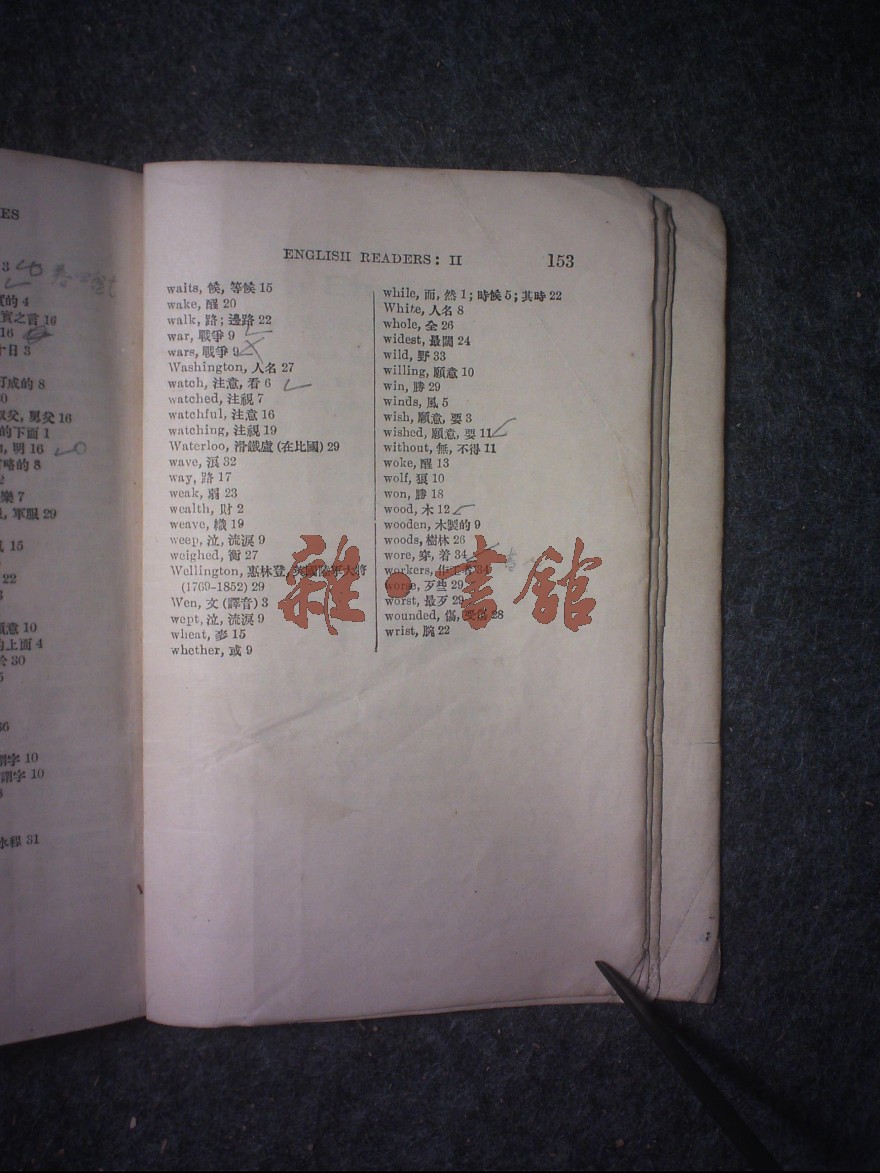 ES
3
的 4
實之言 16
16
十日 3
訂成的 8
0
叔父, 舅父 16
的下面 1
明 16
略的 8
2
樂 7
軍服 29
15
22
3
願意 10
的上面 4
於 30
5
36
謂字 10
謂字 10
3
水程 31
ENGLISH READERS: II 153
waits, 候, 等候 15
wake, 醒 20
walk, 路; 邊路 22
war, 戰爭 9
wars, 戰爭 9
Washington, 人名 27
watch, 注意, 看 6
watched, 注視 7
watchful, 注意 16
watching, 注視 19
Waterloo, 滑鐵盧 (在比國) 29
wave, 浪 32
way, 路 17
weak, 弱 23
wealth, 財 2
weave, 織 19
weep, 泣, 流淚 9
weighed, 衡 27
Wellington, 惠林登, 英國陸軍大將
(1769-1852) 29
Wen, 文 (譯音) 3
wept, 泣, 流淚 9
wheat, 麥 15
whether, 或 9
while, 而, 然 1; 時候 5; 其時 22
White, 人名 8
whole, 全 26
widest, 最闊 24
wild, 野 33
willing, 願意 10
win, 勝 29
winds, 風 5
wish, 願意, 要 3
wished, 願意, 要 11
without, 無, 不得 11
woke, 醒 13
wolf, 狼 10
won, 勝 18
wood, 木 12
wooden, 木製的 9
woods, 樹林 26
wore, 穿, 着 34
workers, 作工者 34
worse, 歹些 29
worst, 最歹 29
wounded, 傷, 受傷 28
wrist, 腕 22
雜·書館